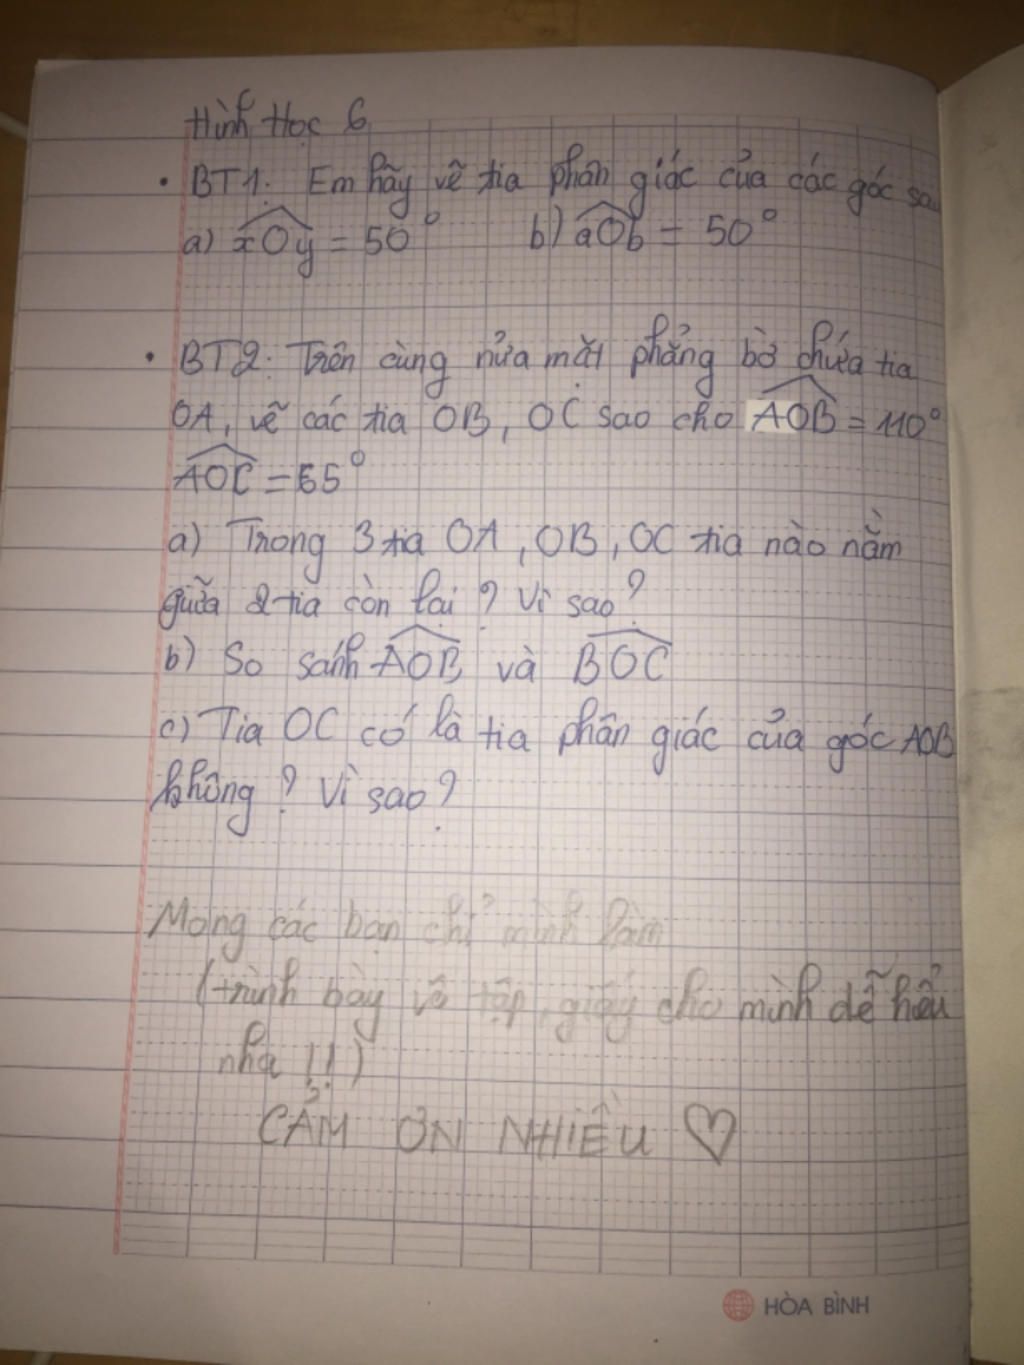 Hình Học 6
• BT1: Em hãy vẽ tia phân giác của các góc sau
a) xOy = 50° b) aOb = 50°
• BT2: Trên cùng nửa mặt phẳng bờ chứa tia
OA, vẽ các tia OB, OC sao cho AOB = 110°
AOC = 55°
a) Trong 3 tia OA, OB, OC tia nào nằm
giữa 2 tia còn lại? Vì sao?
b) So sánh AOB và BOC
c) Tia OC có là tia phân giác của góc AOB
không? Vì sao?
Mong các bạn chỉ mình làm
(trình bày vô tập, giấy cho mình dễ hiểu
nha!!)
CẢM ƠN NHIỀU ♡
HÒA BÌNH